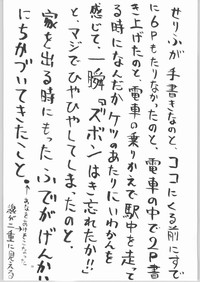 せりふが手書きなのと、ココにくる前にすで
に6Pもたりなかったのと、電車の中で2P書
き上げたのと、電車の乗りかえで駅中を走って
る時になんだかケツのあたりにいわかんを
感じて、一瞬『ズボンはき忘れたか!!』
と、マジでひやひやしてしまったのと、
家を出る時にもった ふでがげんかい
にちかづいてきたこと。
線が二重に見えるう